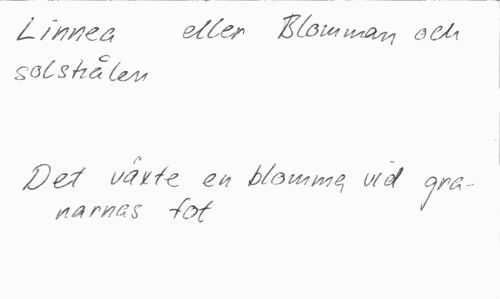 Linnea eller Blomman och
solstrålen
Det växte en blomma vid gra-
narnas fot